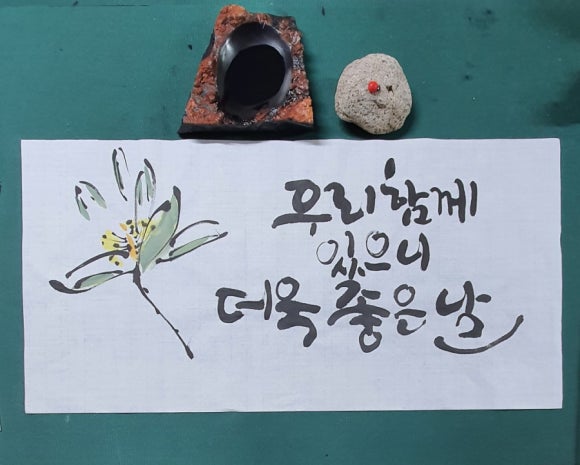 우리 함께
있으니
더욱 좋은 날